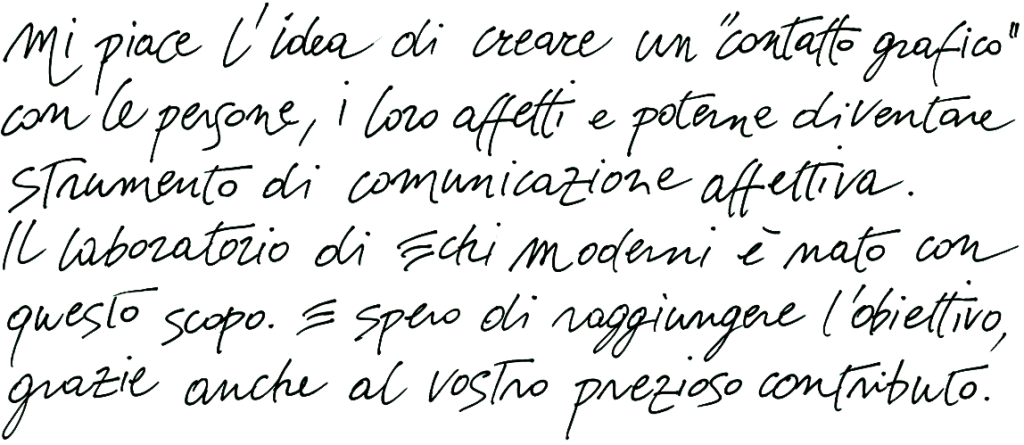 Mi piace l'idea di creare un "contatto grafico"
con le persone, i loro affetti e poterne diventare
strumento di comunicazione affettiva.
Il laboratorio di Echi moderni è nato con
questo scopo. E spero di raggiungere l'obiettivo,
grazie anche al vostro prezioso contributo.